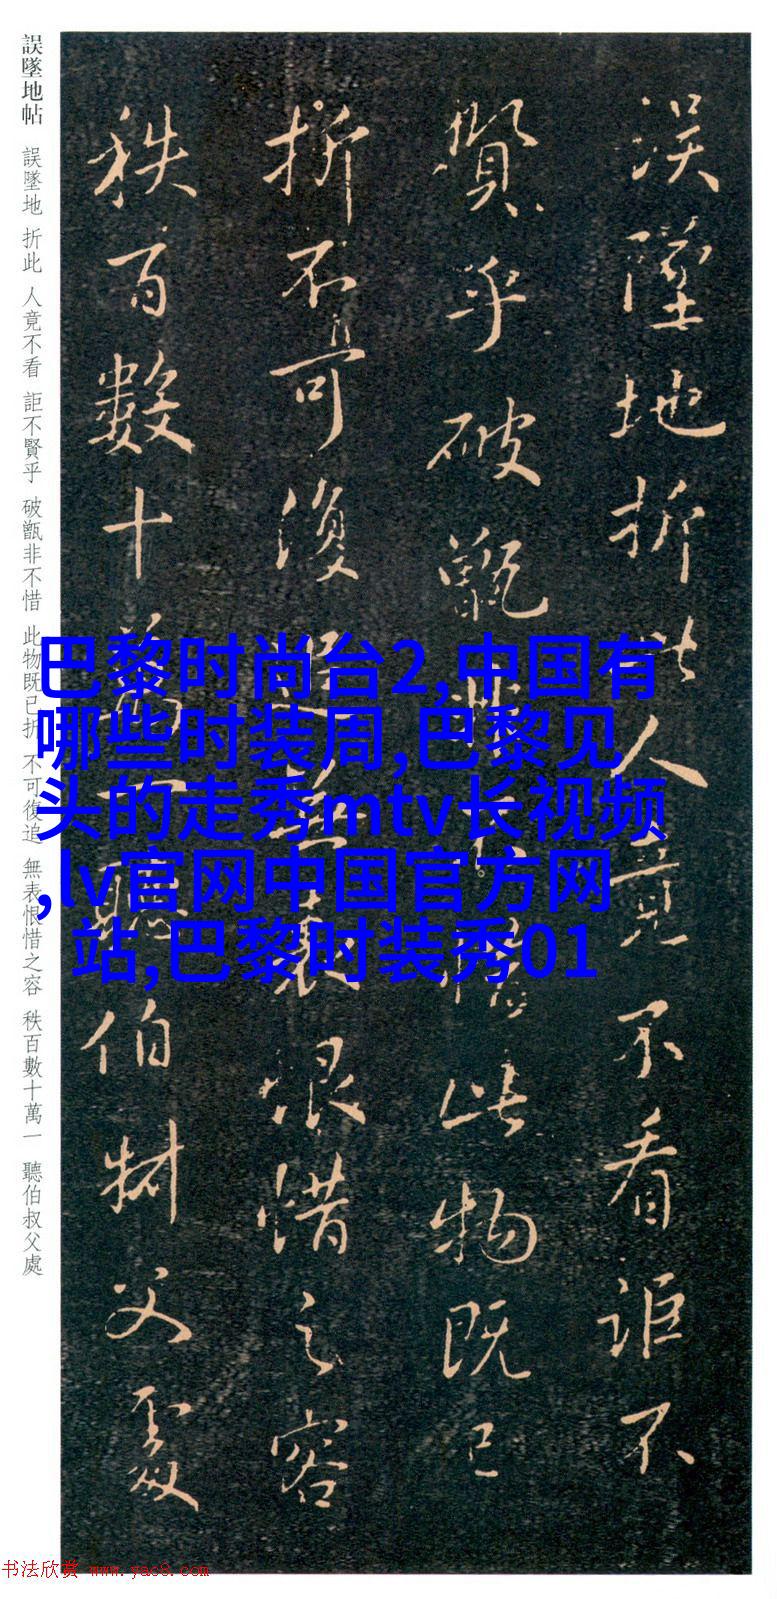 誤墜地帖 誤墜地 折此 人竟不看 詎不賢乎 破甑非不惜 此物既已折 不可復追 無表恨惜之容 秩百數十萬一 聽伯叔父處
误墜地折此人竟不看詎不
賢乎破甑非不惜此物既已
折不可復追無表恨惜之容
秩百數十萬一聽伯叔父處
巴黎时尚台2,中国有
哪些时装周,巴黎见
头的走秀mtv长视频
,lv官网中国官方网
站,巴黎时装秀01
书法欣赏 www.yac8.com